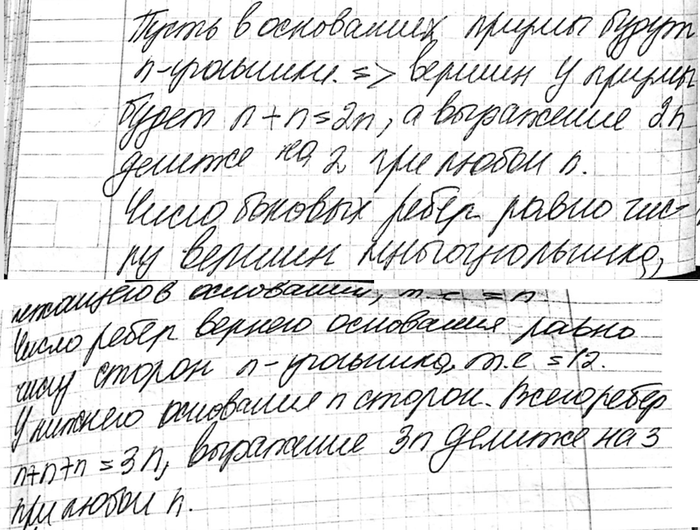 Пусть в основаниях призмы будут
n-угольники. => вершин у призмы
будет n+n=2n, а выражение 2n
делится на 2 при любом n.
Число боковых ребер равно чис-
лу вершин многоугольника,
лежащего в основании, т.е. = n
Число ребер верхнего основания равно
числу сторон n-угольника, т.е. = n.
У нижнего основания n сторон. Всего ребер
n+n+n = 3n, выражение 3n делится на 3
при любом n.